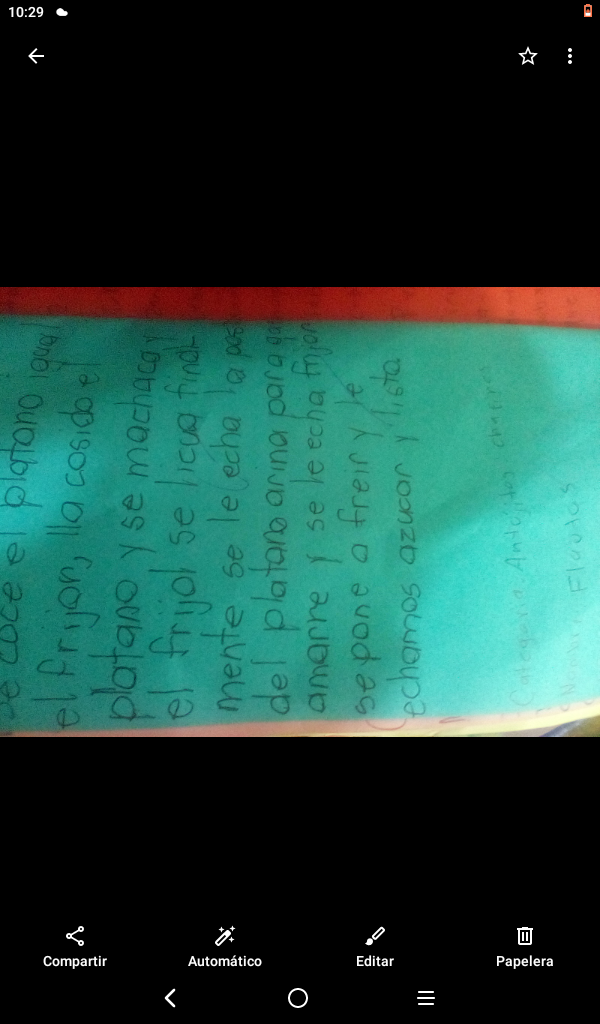 10:29
se coce el platano igual
el frijon, lla cosido el
platano y se machaca y
el frijol se licua final-
mente se le echa la pas
del platano arina para q
amarre y se le echa frijon
se pone a freir y le
echamos azucar y lista
Categoria: Antojitos
Compartir
Automático
Editar
Papelera